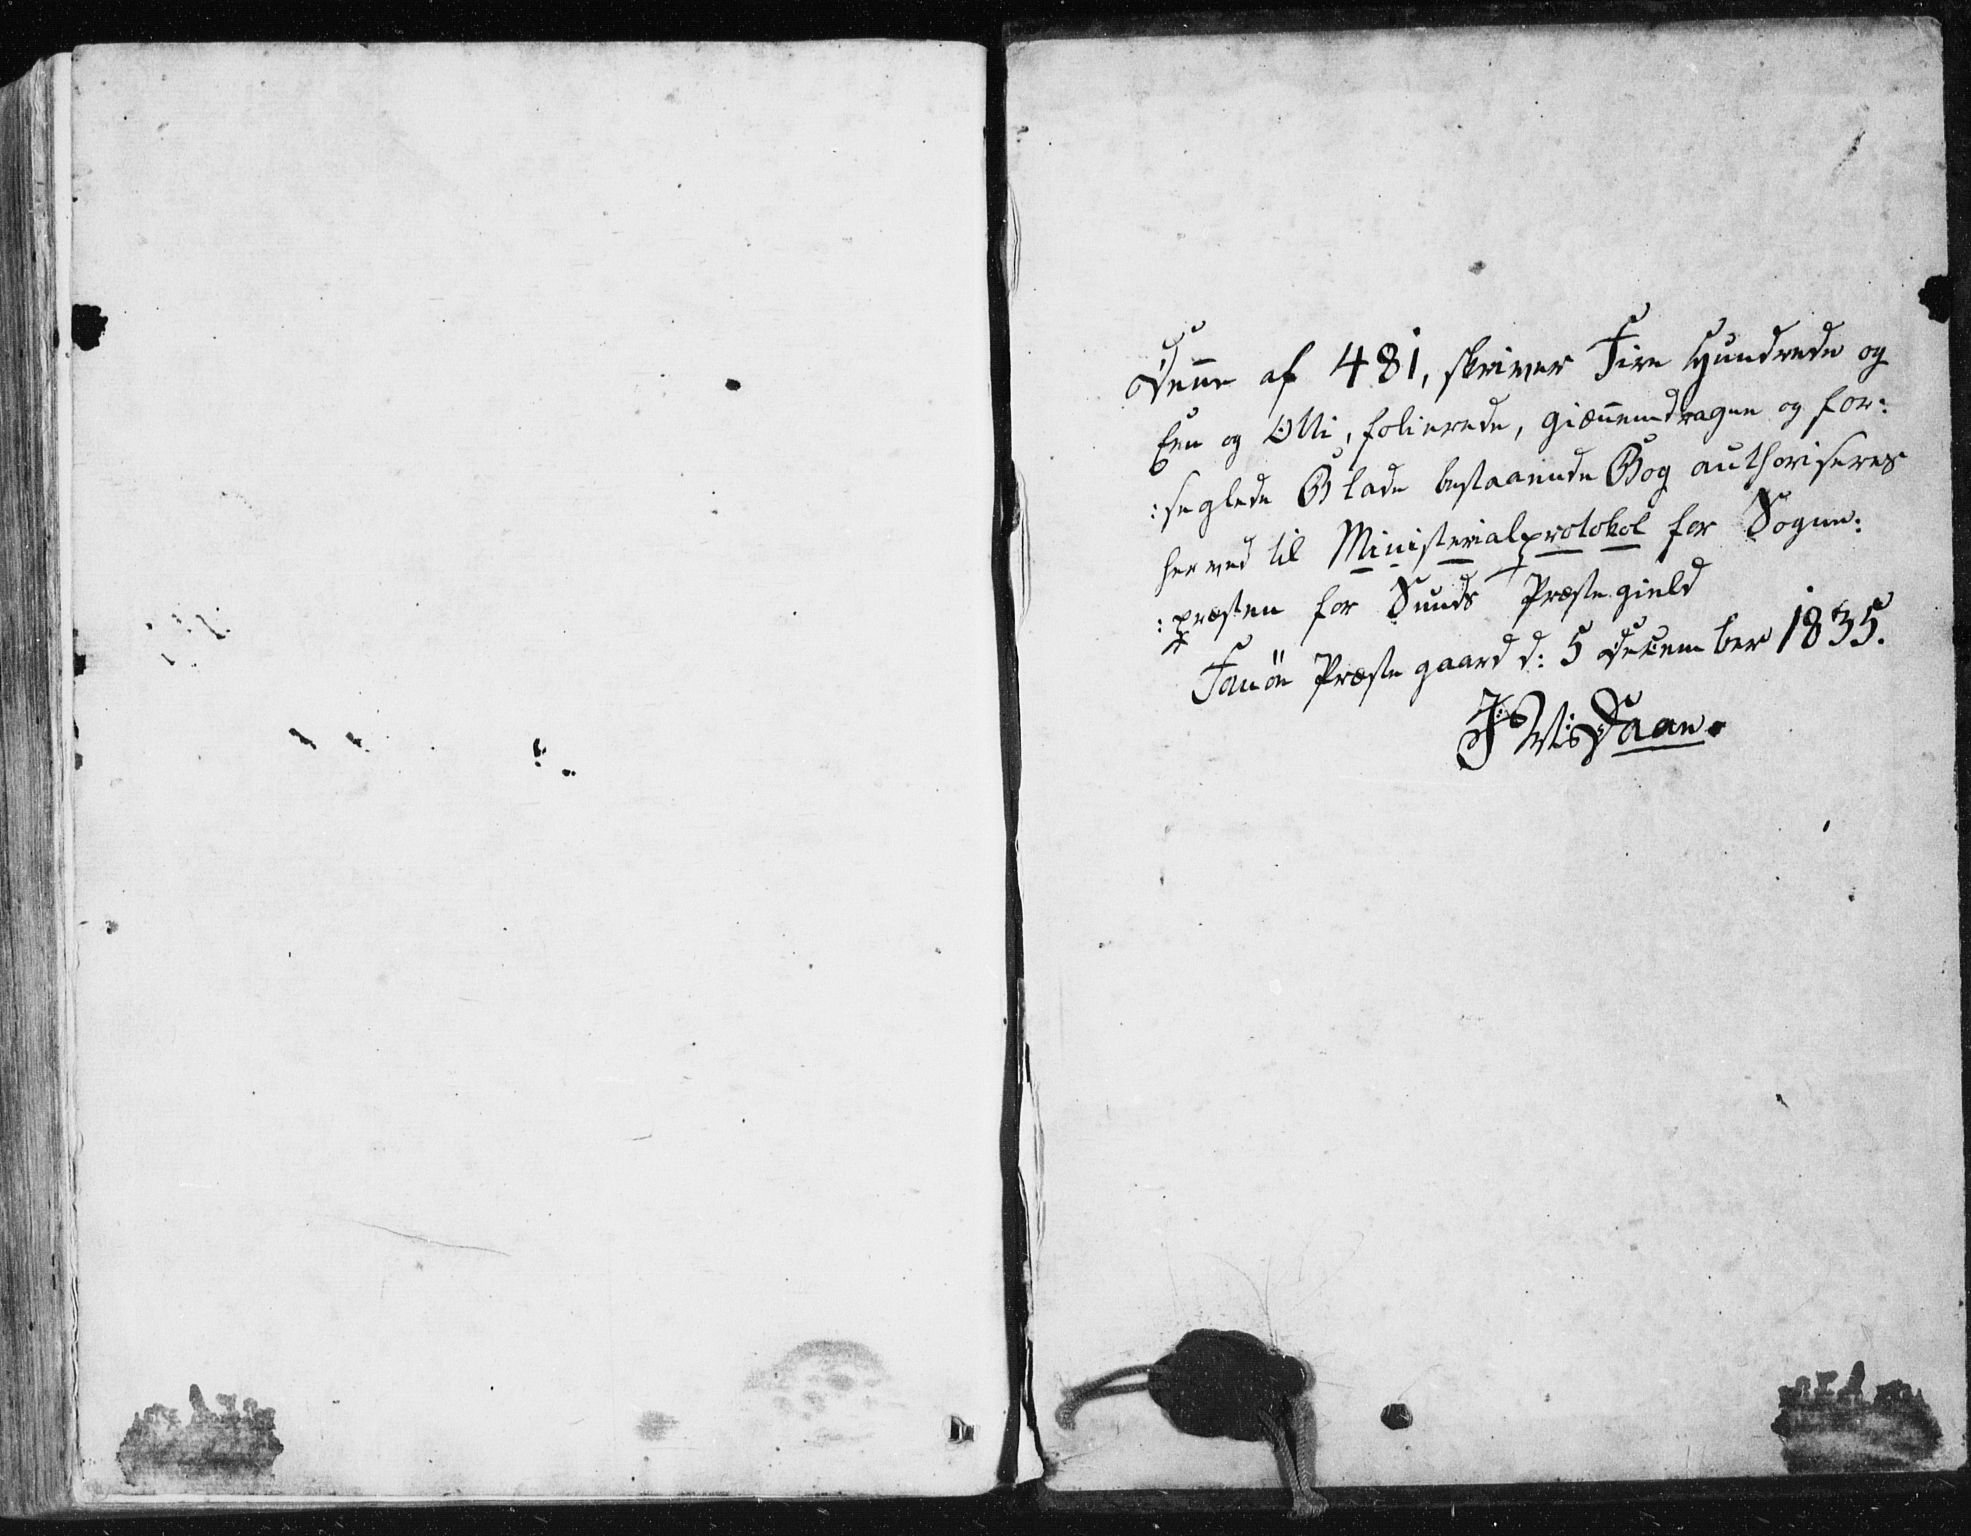 Denne af 481, skriver Fire Hundrede og
Een og Otti, folierede, giennemdragne og for:
:seglede Blade bestaaende Bog authoriseres
herved til Ministerialprotokol for Sogne:
:præsten for Sunds Præstegield
Fanøe Præstegaard d: 5 December 1835.